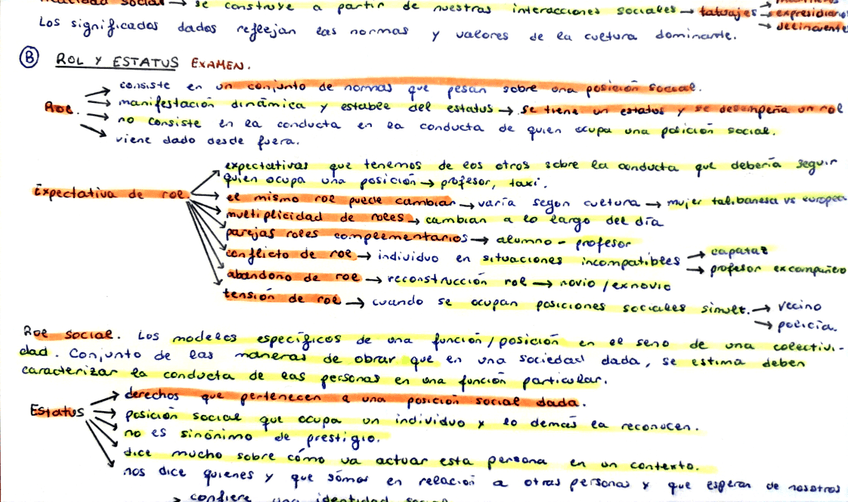 social → se construye a partir de nuestras interacciones sociales → tatuajes → expresidiario
→ delincuente
Los significados dados reflejan las normas y valores de la cultura dominante.
B ROL Y ESTATUS EXAMEN.
Rol. → consiste en un conjunto de normas que pesan sobre una posición social.
→ manifestación dinámica y estable del estatus → se tiene un estatus y se desempeña un rol
→ no consiste en la conducta en la conducta de quien ocupa una posición social.
→ viene dado desde fuera.
Expectativa de rol. → expectativas que tenemos de los otros sobre la conducta que debería seguir
quien ocupa una posición → profesor, taxi.
→ el mismo rol puede cambiar → varía segon cultura → mujer talibanesa vs europea
→ multiplicidad de roles → cambian a lo largo del día
→ parejas roles complementarios → alumno - profesor
→ conflicto de rol → individuo en situaciones incompatibles → capataz
→ profesor excompañero
→ abandono de rol → reconstrucción rol → novio / exnovio
→ tensión de rol → cuando se ocupan posiciones sociales simult. → vecino
→ policía.
Rol social. Los modelos específicos de una función / posición en el seno de una colectivi-
dad. Conjunto de las maneras de obrar que en una sociedad dada, se estima deben
caracterizar la conducta de las personas en una función particular.
Estatus → derechos que pertenecen a una posición social dada.
→ posición social que ocupa un individuo y lo demás la reconocen.
→ no es sinónimo de prestigio.
→ dice mucho sobre cómo va actuar esta persona en un contexto.
nos dice quienes y que somos en relación a otras personas y que esperan de nosotros
→ confiere una identidad social